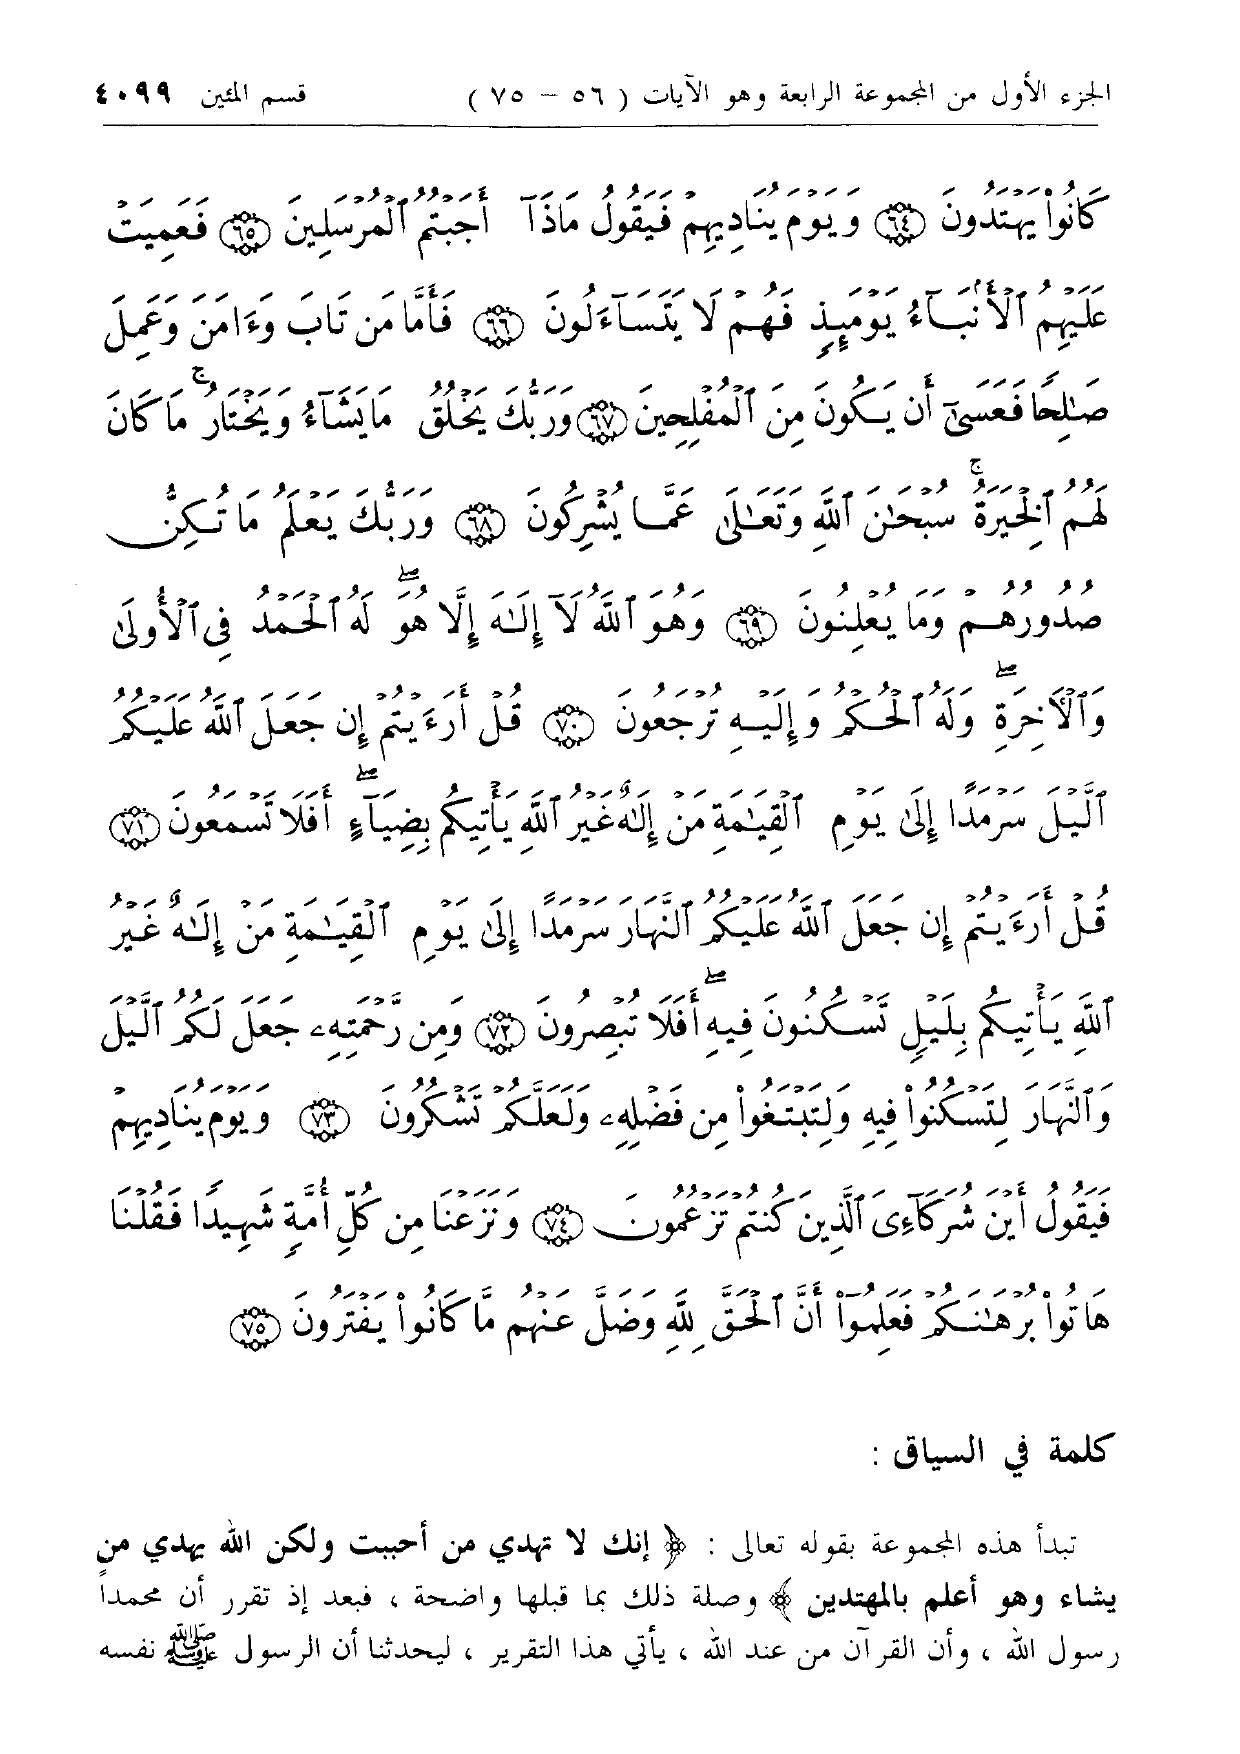 الجزء الأول من المجموعة الرابعة وهو الآيات ( ٥٦ – ٧٥ ) قسم المئين ٤٠٩٩
كَانُوا۟ يَهْتَدُونَ ﴿٦٤﴾ وَيَوْمَ يُنَادِيهِمْ فَيَقُولُ مَاذَآ أَجَبْتُمُ ٱلْمُرْسَلِينَ ﴿٦٥﴾ فَعَمِيَتْ
عَلَيْهِمُ ٱلْأَنۢبَآءُ يَوْمَئِذٍ فَهُمْ لَا يَتَسَآءَلُونَ ﴿٦٦﴾ فَأَمَّا مَن تَابَ وَءَامَنَ وَعَمِلَ
صَـٰلِحًا فَعَسَىٰٓ أَن يَكُونَ مِنَ ٱلْمُفْلِحِينَ ﴿٦٧﴾ وَرَبُّكَ يَخْلُقُ مَا يَشَآءُ وَيَخْتَارُ ۚ مَا كَانَ
لَهُمُ ٱلْخِيَرَةُ ۚ سُبْحَـٰنَ ٱللَّهِ وَتَعَـٰلَىٰ عَمَّا يُشْرِكُونَ ﴿٦٨﴾ وَرَبُّكَ يَعْلَمُ مَا تُكِنُّ
صُدُورُهُمْ وَمَا يُعْلِنُونَ ﴿٦٩﴾ وَهُوَ ٱللَّهُ لَآ إِلَـٰهَ إِلَّا هُوَ ۖ لَهُ ٱلْحَمْدُ فِى ٱلْأُولَىٰ
وَٱلْـَٔاخِرَةِ ۖ وَلَهُ ٱلْحُكْمُ وَإِلَيْهِ تُرْجَعُونَ ﴿٧٠﴾ قُلْ أَرَءَيْتُمْ إِن جَعَلَ ٱللَّهُ عَلَيْكُمُ
ٱلَّيْلَ سَرْمَدًا إِلَىٰ يَوْمِ ٱلْقِيَـٰمَةِ مَنْ إِلَـٰهٌ غَيْرُ ٱللَّهِ يَأْتِيكُم بِضِيَآءٍ ۖ أَفَلَا تَسْمَعُونَ ﴿٧١﴾
قُلْ أَرَءَيْتُمْ إِن جَعَلَ ٱللَّهُ عَلَيْكُمُ ٱلنَّهَارَ سَرْمَدًا إِلَىٰ يَوْمِ ٱلْقِيَـٰمَةِ مَنْ إِلَـٰهٌ غَيْرُ
ٱللَّهِ يَأْتِيكُم بِلَيْلٍ تَسْكُنُونَ فِيهِ ۖ أَفَلَا تُبْصِرُونَ ﴿٧٢﴾ وَمِن رَّحْمَتِهِۦ جَعَلَ لَكُمُ ٱلَّيْلَ
وَٱلنَّهَارَ لِتَسْكُنُوا۟ فِيهِ وَلِتَبْتَغُوا۟ مِن فَضْلِهِۦ وَلَعَلَّكُمْ تَشْكُرُونَ ﴿٧٣﴾ وَيَوْمَ يُنَادِيهِمْ
فَيَقُولُ أَيْنَ شُرَكَآءِىَ ٱلَّذِينَ كُنتُمْ تَزْعُمُونَ ﴿٧٤﴾ وَنَزَعْنَا مِن كُلِّ أُمَّةٍ شَهِيدًا فَقُلْنَا
هَاتُوا۟ بُرْهَـٰنَكُمْ فَعَلِمُوٓا۟ أَنَّ ٱلْحَقَّ لِلَّهِ وَضَلَّ عَنْهُم مَّا كَانُوا۟ يَفْتَرُونَ ﴿٧٥﴾
كلمة في السياق :
تبدأ هذه المجموعة بقوله تعالى : ﴿ إنك لا تهدي من أحببت ولكن الله يهدي من
يشاء وهو أعلم بالمهتدين ﴾ وصلة ذلك بما قبلها واضحة ، فبعد إذ تقرر أن محمداً
رسول الله ، وأن القرآن من عند الله ، يأتي هذا التقرير ، ليحدثنا أن الرسول ﷺ نفسه